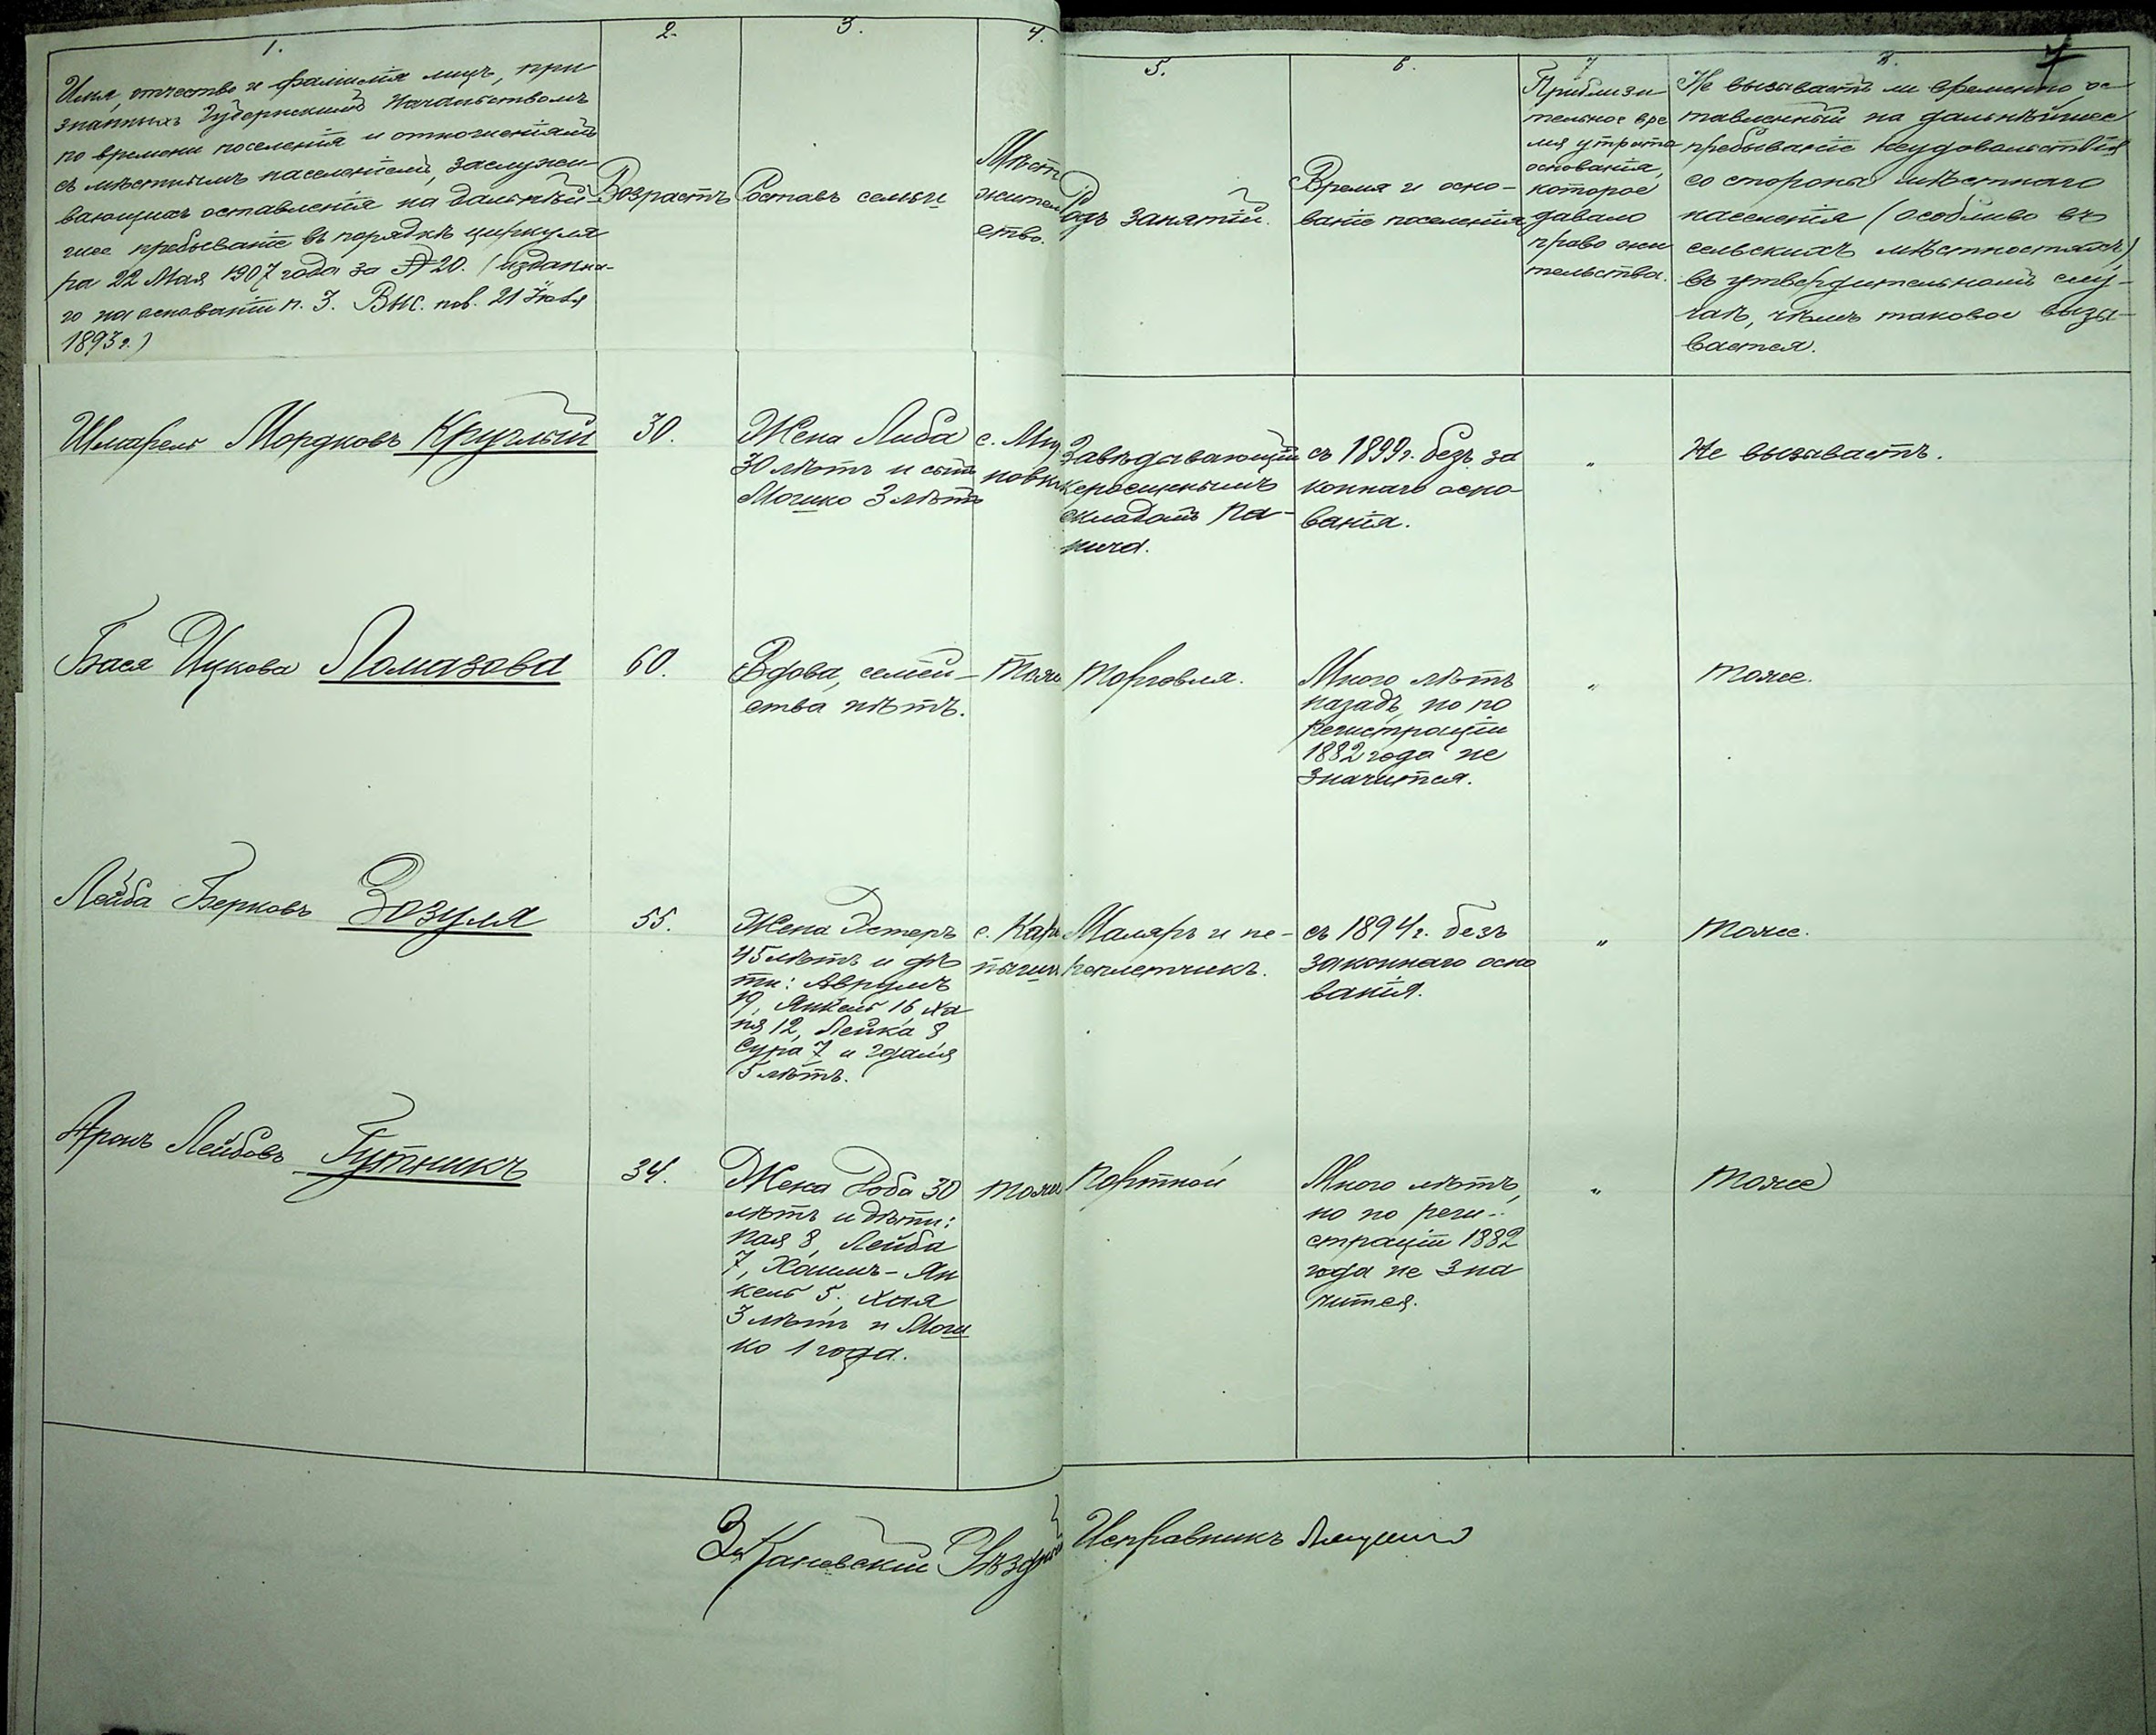 7
1.
Имя, отчество и фамилія лицъ, при
знанныхъ Губернскимъ Начальствомъ
по времени поселенія и отношеніямъ
съ мѣстнымъ населеніемъ, заслужи
вающихъ оставленія на дальнѣй-
шее пребываніе въ порядкѣ циркуля
ра 22 Мая 1907 года за № 20. (изданна-
го на основаніи п. 3. Выс. пов. 21 Іюля
1893 г.)
2.
Возрастъ
3.
Составъ семьи
4.
Мѣсто
жител
ство.
5.
Родъ занятій.
6.
Время и осно-
ваніе поселенія
7
Приблизи
тельное вре
мя утраты
основанія,
которое
давало
право жи
тельства.
8.
Не вызываетъ ли временно ос
тавленный на дальнѣйшее
пребываніе неудовольствія
со стороны мѣстнаго
населенія (особливо въ
сельскихъ мѣстностяхъ)
въ утвердительномъ слу-
чаѣ, чѣмъ таковое вызы-
вается.
Шмарель Мордковъ Круглый
30.
Жена Либа
30 лѣтъ и сынъ
Мошко 3 лѣтъ
с.
новка
Завѣдавающій
керосиннымъ
складомъ Па-
нича.
съ 1899 г. безъ за
коннаго осно-
ванія.
"
Не вызываетъ.
Бася Ицкова Ломазова
60.
Вдова, семей-
ства нѣтъ.
Тоже
Торговля.
Много лѣтъ
назадъ, но по
регистраціи
1882 года не
значится.
"
Тоже.
Лейба Берковъ Зозуля
55.
Жена Эстеръ
45 лѣтъ и дѣ
ти: Аврумъ
19, Янкель 16 Ха
ня 12, Лейка 8
Сура 7 и Гдаля
5 лѣтъ.
с. Кар
Маляръ и пе-
реплетчикъ.
съ 1894 г. безъ
законнаго осно
ванія.
"
Тоже.
Аронъ Лейбовъ Гутникъ
34.
Жена Доба 30
лѣтъ и дѣти:
8, Лейба
7, Хаимъ-Ян
кель 5, Хая
3 лѣтъ и Мош
ко 1 года.
Тоже
Портной
Много лѣтъ,
но по реги-
страціи 1882
года не зна
чится.
"
Тоже
За Каневскій Уѣздный Исправникъ